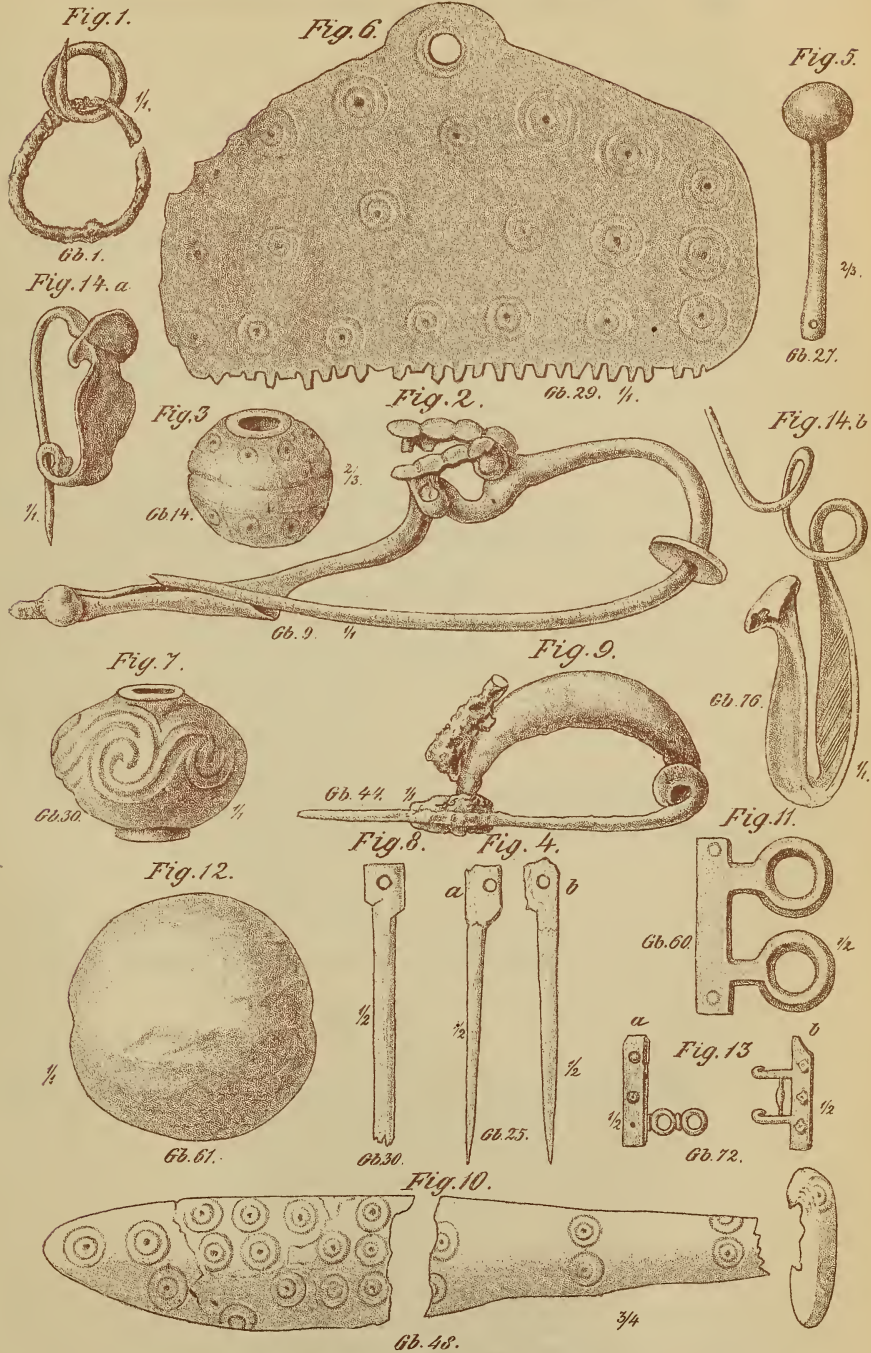 Fig. 1.
1/1.
Gb. 1.
Fig. 6.
Gb. 29. 1/1.
Fig. 5.
2/3.
Gb. 27.
Fig. 14. a
1/1.
Fig. 3
2/3.
Gb. 14.
Fig. 2.
Gb. 9. 1/1
Fig. 14. b
Gb. 76.
1/1.
Fig. 7.
Gb. 30.
1/1
Fig. 9.
Gb. 44. 1/1
Fig. 12.
1/1
Gb. 61.
Fig. 8.
1/2
Gb. 30.
Fig. 4.
a
b
1/2
1/2
Gb. 25.
Fig. 11.
Gb. 60.
1/2
Fig. 13
a
b
1/2
1/2
Gb. 72.
Fig. 10.
3/4
Gb. 48.